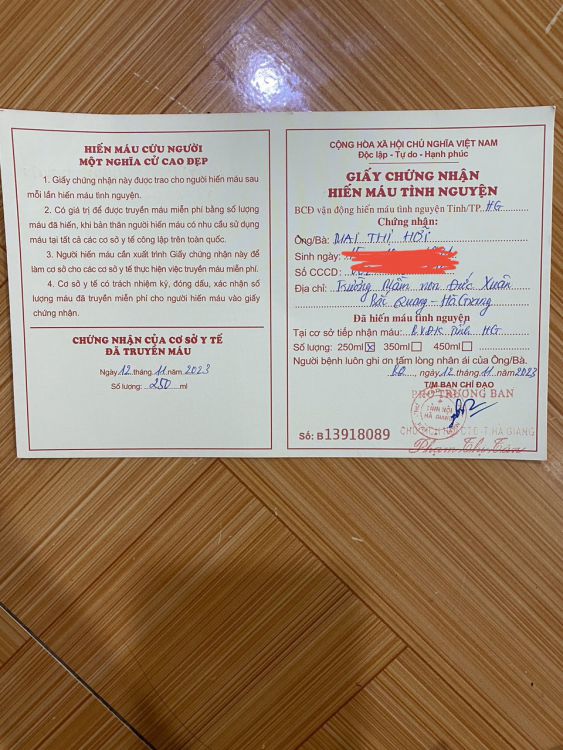 HIẾN MÁU CỨU NGƯỜI
MỘT NGHĨA CỬ CAO ĐẸP
1. Giấy chứng nhận này được trao cho người hiến máu sau
mỗi lần hiến máu tình nguyện.
2. Có giá trị để được truyền máu miễn phí bằng số lượng
máu đã hiến, khi bản thân người hiến máu có nhu cầu sử dụng
máu tại tất cả các cơ sở y tế công lập trên toàn quốc.
3. Người hiến máu cần xuất trình Giấy chứng nhận này để
làm cơ sở cho các cơ sở y tế thực hiện việc truyền máu miễn phí.
4. Cơ sở y tế có trách nhiệm ký, đóng dấu, xác nhận số
lượng máu đã truyền miễn phí cho người hiến máu vào giấy
chứng nhận.
CHỨNG NHẬN CỦA CƠ SỞ Y TẾ
ĐÃ TRUYỀN MÁU
Ngày 12 tháng 11 năm 2023
Số lượng: 250 ml
CỘNG HÒA XÃ HỘI CHỦ NGHĨA VIỆT NAM
Độc lập - Tự do - Hạnh phúc
GIẤY CHỨNG NHẬN
HIẾN MÁU TÌNH NGUYỆN
BCĐ vận động hiến máu tình nguyện Tỉnh/TP. HG
Chứng nhận:
Ông/Bà: MAI THỊ HỚI
Sinh ngày:
Số CCCD:
Địa chỉ: Trường Mầm non Đức Xuân
Bắc Quang - Hà Giang
Đã hiến máu tình nguyện
Tại cơ sở tiếp nhận máu: BVĐK tỉnh HG
Số lượng: 250ml 350ml 450ml
Người bệnh luôn ghi ơn tấm lòng nhân ái của Ông/Bà.
BQ, ngày 12 tháng 11 năm 2023
T/M BAN CHỈ ĐẠO
PHÓ TRƯỞNG BAN
HÀ GIANG
CHỦ TỊCH HỘI CTĐ T.HÀ GIANG
Số: B 13918089
Phạm Thị Tân